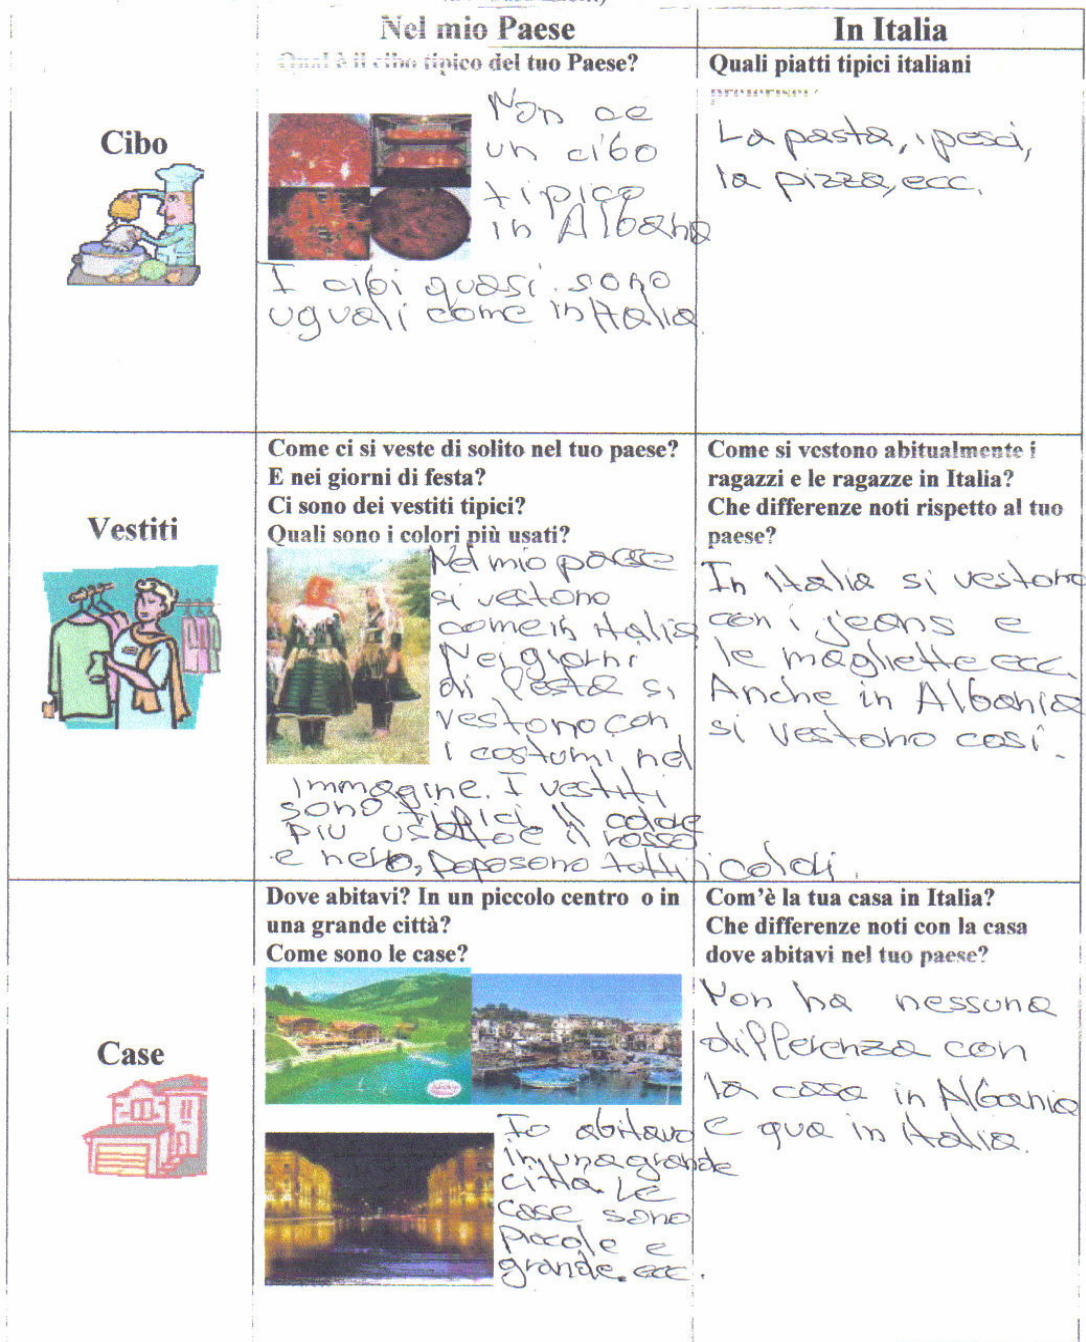 Nel mio Paese
In Italia
Cibo
Qual è il cibo tipico del tuo Paese?
Non ce
un cibo
tipico
in Albania
I cibi quasi sono
uguali come in Italia.
Quali piatti tipici italiani
preferisci?
La pasta, i pesci,
la pizza, ecc.
Vestiti
Come ci si veste di solito nel tuo paese?
E nei giorni di festa?
Ci sono dei vestiti tipici?
Quali sono i colori più usati?
Nel mio paese
si vestono
come in italia
Nei giorni
di festa si
vestono con
i costumi nel
immagine. I vestiti
sono tipici. Il colore
più usatto è il rosso
e nero, Dopo sono tutti i colori.
Come si vestono abitualmente i
ragazzi e le ragazze in Italia?
Che differenze noti rispetto al tuo
paese?
In Italia si vestono
con i jeans e
le magliette ecc.
Anche in Albania
si vestono cosí.
Case
Dove abitavi? In un piccolo centro o in
una grande città?
Come sono le case?
Io abitavo
in una grande
città. Le
case sono
piccole e
grande. ecc.
Com'è la tua casa in Italia?
Che differenze noti con la casa
dove abitavi nel tuo paese?
Non ha nessuna
differenza con
la casa in Albania
e qua in italia.